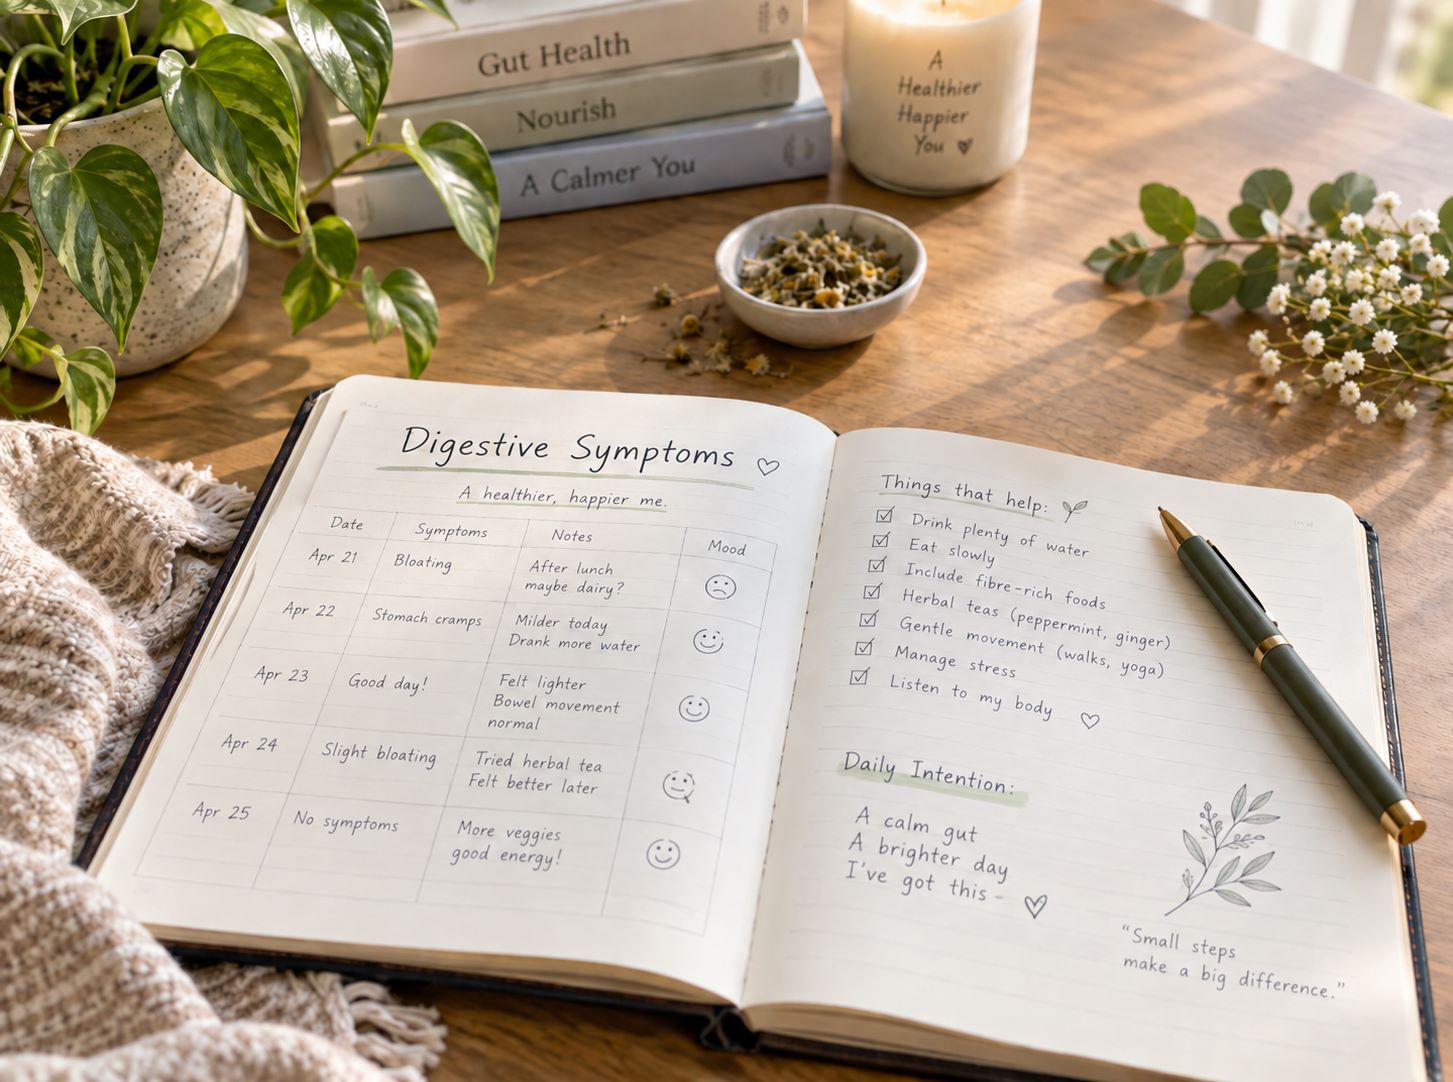 Gut Health
Nourish
A Calmer You
A
Healthier
Happier
You
Digestive Symptoms
A healthier, happier me.
Date Symptoms Notes Mood
Apr 21 Bloating After lunch
maybe dairy?
Apr 22 Stomach cramps Milder today
Drank more water
Apr 23 Good day! Felt lighter
Bowel movement
normal
Apr 24 Slight bloating Tried herbal tea
Felt better later
Apr 25 No symptoms More veggies
good energy!
Things that help:
Drink plenty of water
Eat slowly
Include fibre-rich foods
Herbal teas (peppermint, ginger)
Gentle movement (walks, yoga)
Manage stress
Listen to my body
Daily Intention:
A calm gut
A brighter day
I've got this -
"Small steps
make a big difference."